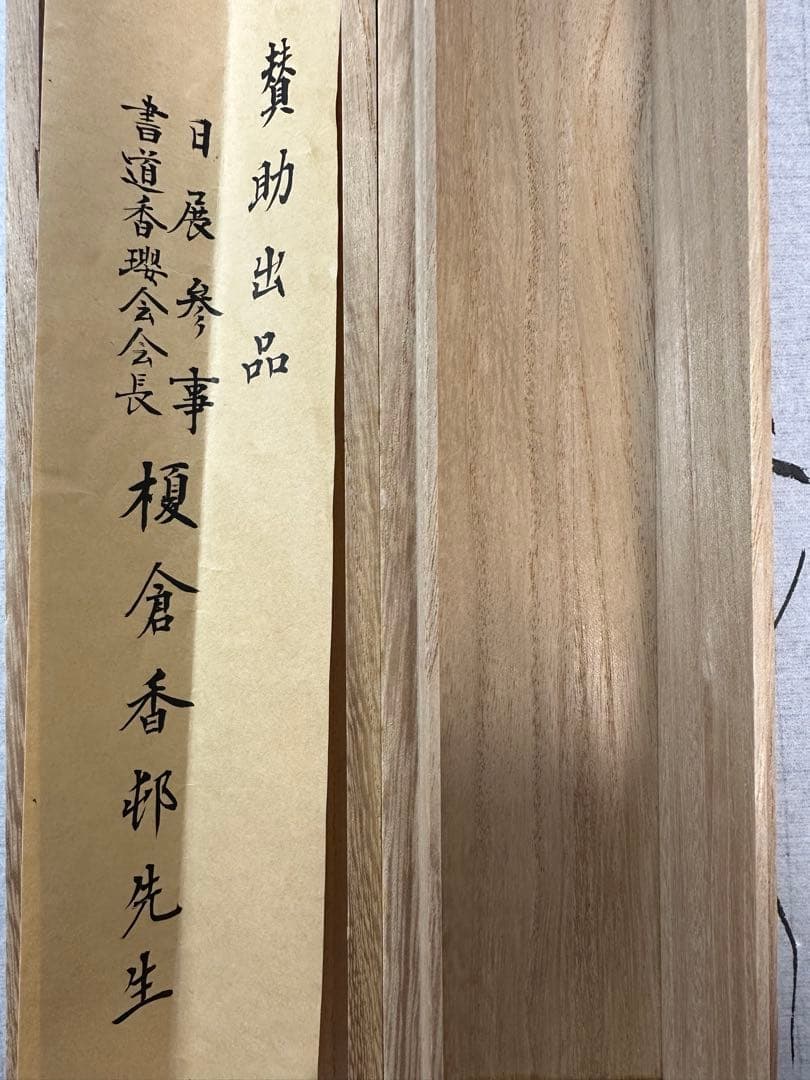 賛助出品
日展参事
書道香瓔会会長
榎倉香邨先生